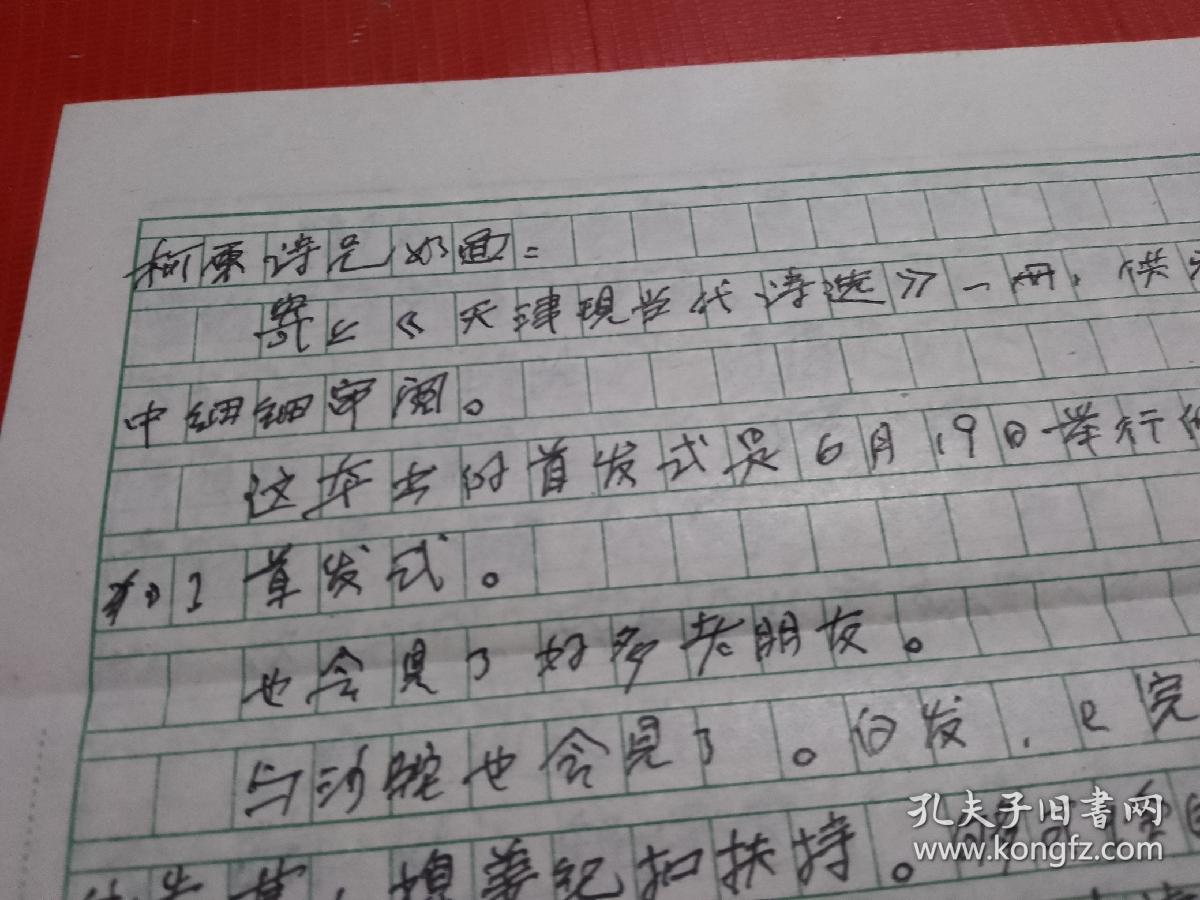 柯原诗兄如面：
寄上《天津现当代诗选》一册，供
中细细审阅。
这本书的首发式是6月19日举行
加了首发式。
也会见了好多老朋友。
与沙驼也会见了。白发，已完
扶持。
孔夫子旧书网
www.kongfz.com